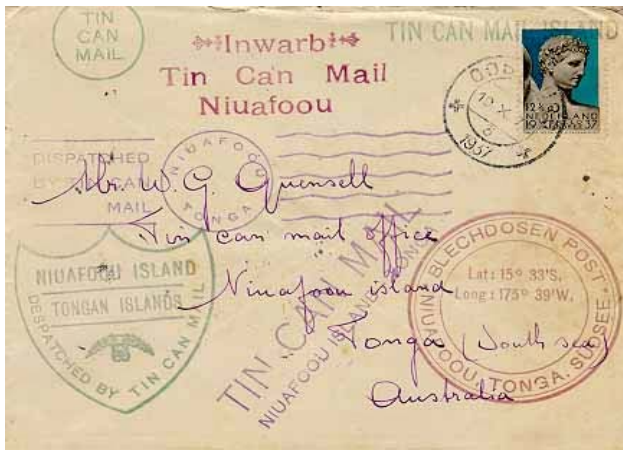 TIN
CAN
MAIL
TIN CAN MAIL ISLAND
Inward
Tin Can Mail
Niuafoou
12½ ct
NEDERLAND
1937
DISPATCHED
BY TIN CAN
MAIL
NIUAFOOU
TONGA
Mr. W. G. Quensell
Tin can mail office
Niuafoou island
Tonga (South sea)
Australia
NIUAFOOU ISLAND
TONGAN ISLANDS
DESPATCHED BY TIN CAN MAIL
TIN CAN MAIL
NIUAFOOU ISLAND
BLECHDOSEN POST
Lat: 15º 33'S.
Long: 175º 39'W.
NIUAFOOU, TONGA, SUDSEE